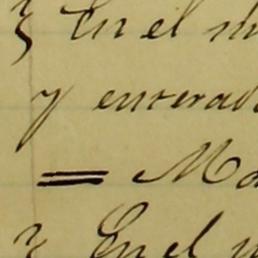 } En el
y enterad
= Ma
} En el